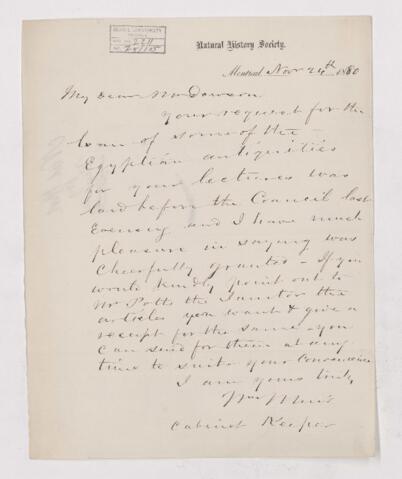 McGILL UNIVERSITY
ACC. NO. 2211
REF.
Natural History Society.
Montreal, Novr 24th 1880
My dear Mr Dawson
Your request for the
loan of some of the
Egyptian antiquities
for your lectures was
laid before the Council last
Evening and I have much
pleasure in saying was
Cheerfully granted – If you
would kindly point out to
Mr Potts the Janitor the
articles you want & give a
receipt for the same you
can send for them at any
time to suit your Convenience
I am yours truly,
Wm Muir
Cabinet Keeper